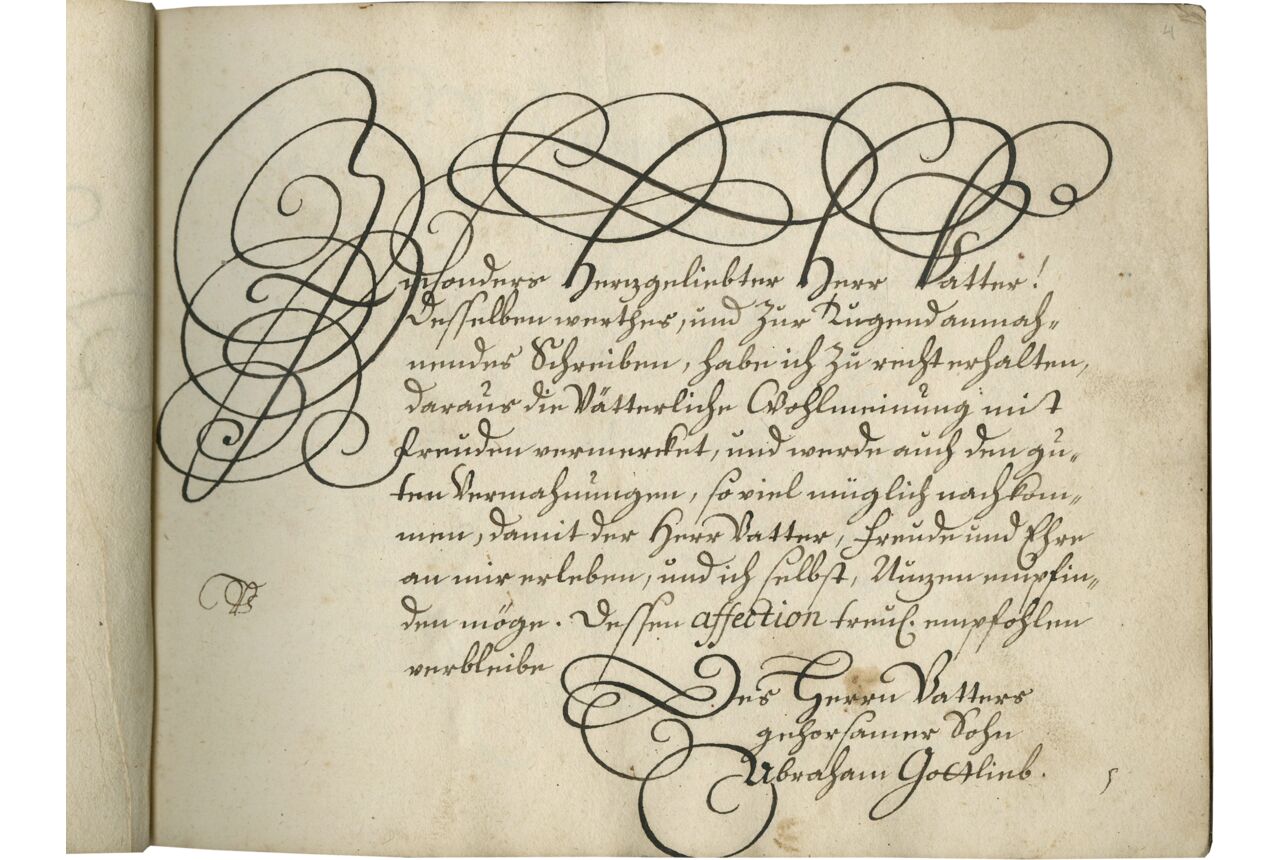 4
Insonders Hertzgeliebter Herr Vatter!
Desselben werthes, und zur Tugend anmah-
nendes Schreiben, habe ich zu recht erhalten,
daraus die Vätterliche Wohlmeinung mit
freuden vermercket, und werde auch den gu-
ten Vermahnungen, so viel müglich nachkom-
men, damit der Herr Vatter, freude und Ehre
an mir erleben, und ich selbst, Nutzen empfin-
den möge. Dessen affection treul. empfohlen
verbleibe
Des Herrn Vatters
gehorsamer Sohn
Abraham Gottlieb.